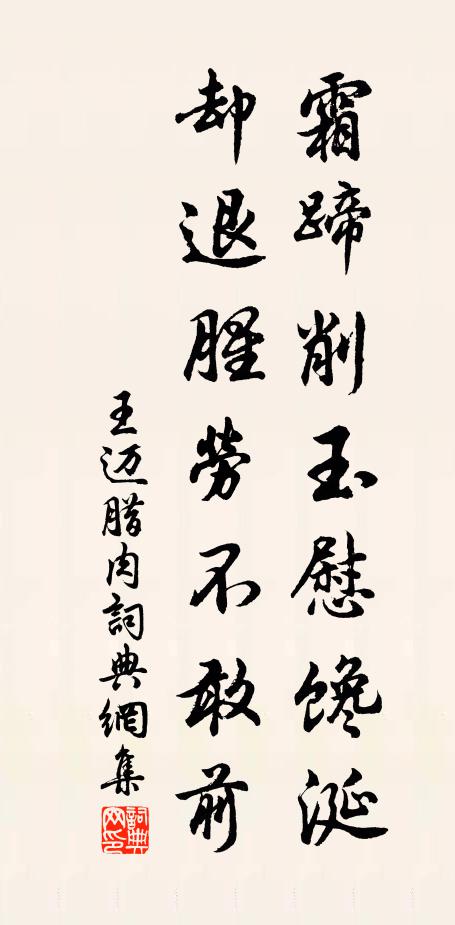 霜蹄削玉慰馋涎
却退腥劳不敢前
王迈腊肉詞典網集
詞典网印